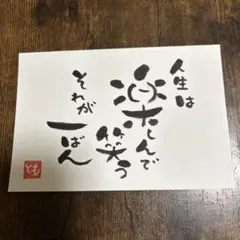 人生は
楽しんで
笑う
それが
一ばん